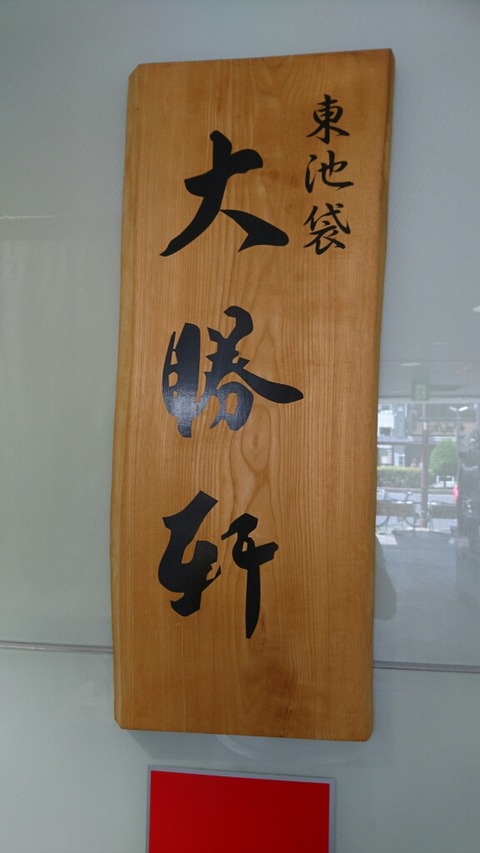 東池袋
大勝軒